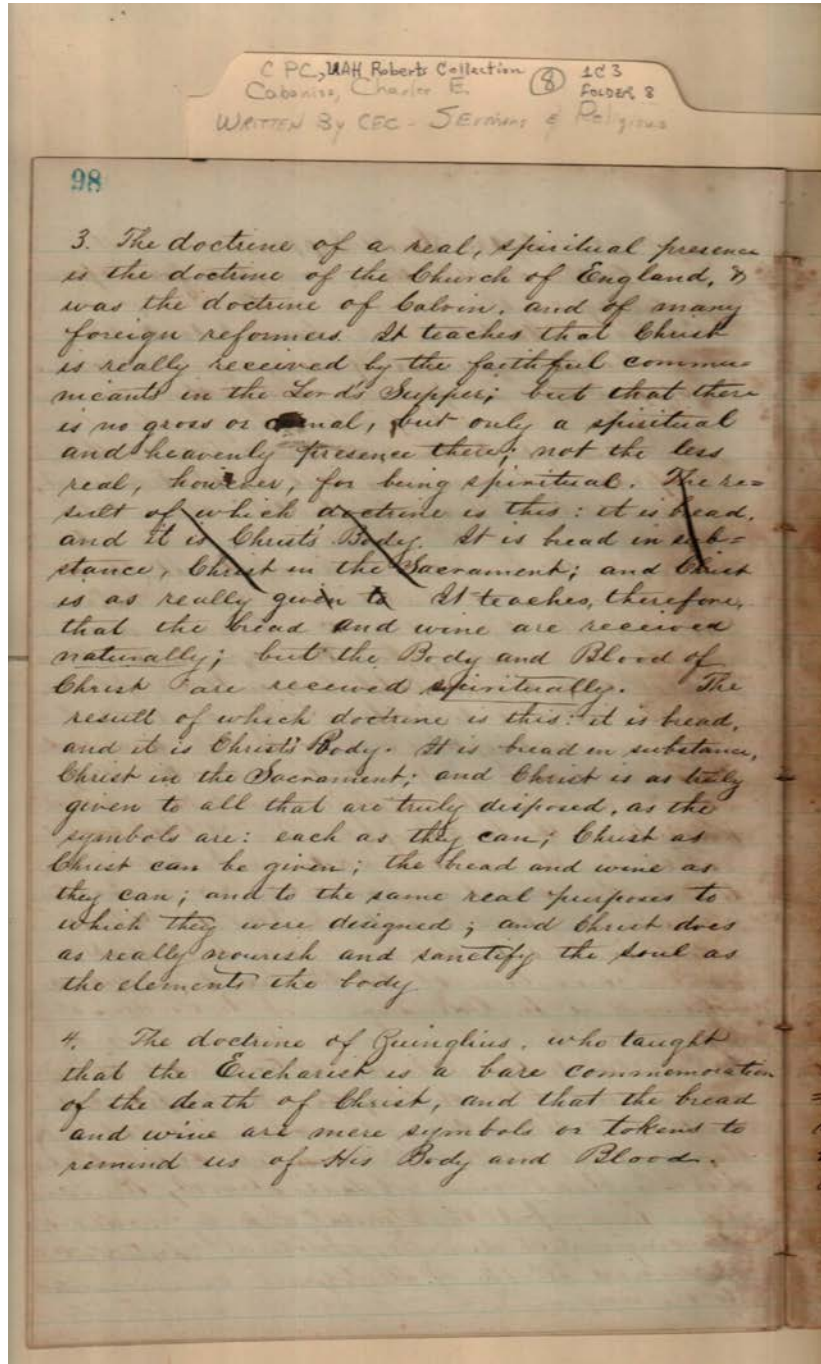 C PC, UAH Roberts Collection 8 1C3
Cabaniss, Charles E. FOLDER 8
WRITTEN By CEC - SErmons & Religious
98
3. The doctrine of a real, spiritual presence
is the doctrine of the Church of England, &
was the doctrine of Calvin, and of many
foreign reformers. It teaches that Christ
is really received by the faithful commu=
nicants in the Lord's Supper; but that there
is no gross or carnal, but only a spiritual
and heavenly presence there; not the less
real, however, for being spiritual. The re=
sult of which doctrine is this: it is bread,
and it is Christ's Body. It is bread in sub=
stance, Christ in the Sacrament; and Christ
is as really given to It teaches, therefore,
that the bread and wine are received
naturally; but the Body and Blood of
Christ are received spiritually. The
result of which doctrine is this: it is bread,
and it is Christ's Body. It is bread in substance,
Christ in the Sacrament; and Christ is as truly
given to all that are truly disposed, as the
symbols are: each as they can; Christ as
Christ can be given; the bread and wine as
they can; and to the same real purposes to
which they were designed; and Christ does
as really nourish and sanctify the soul as
the elements the body
4. The doctrine of Zuinglius, who taught
that the Eucharist is a bare commemoration
of the death of Christ, and that the bread
and wine are mere symbols or tokens to
remind us of His Body and Blood.